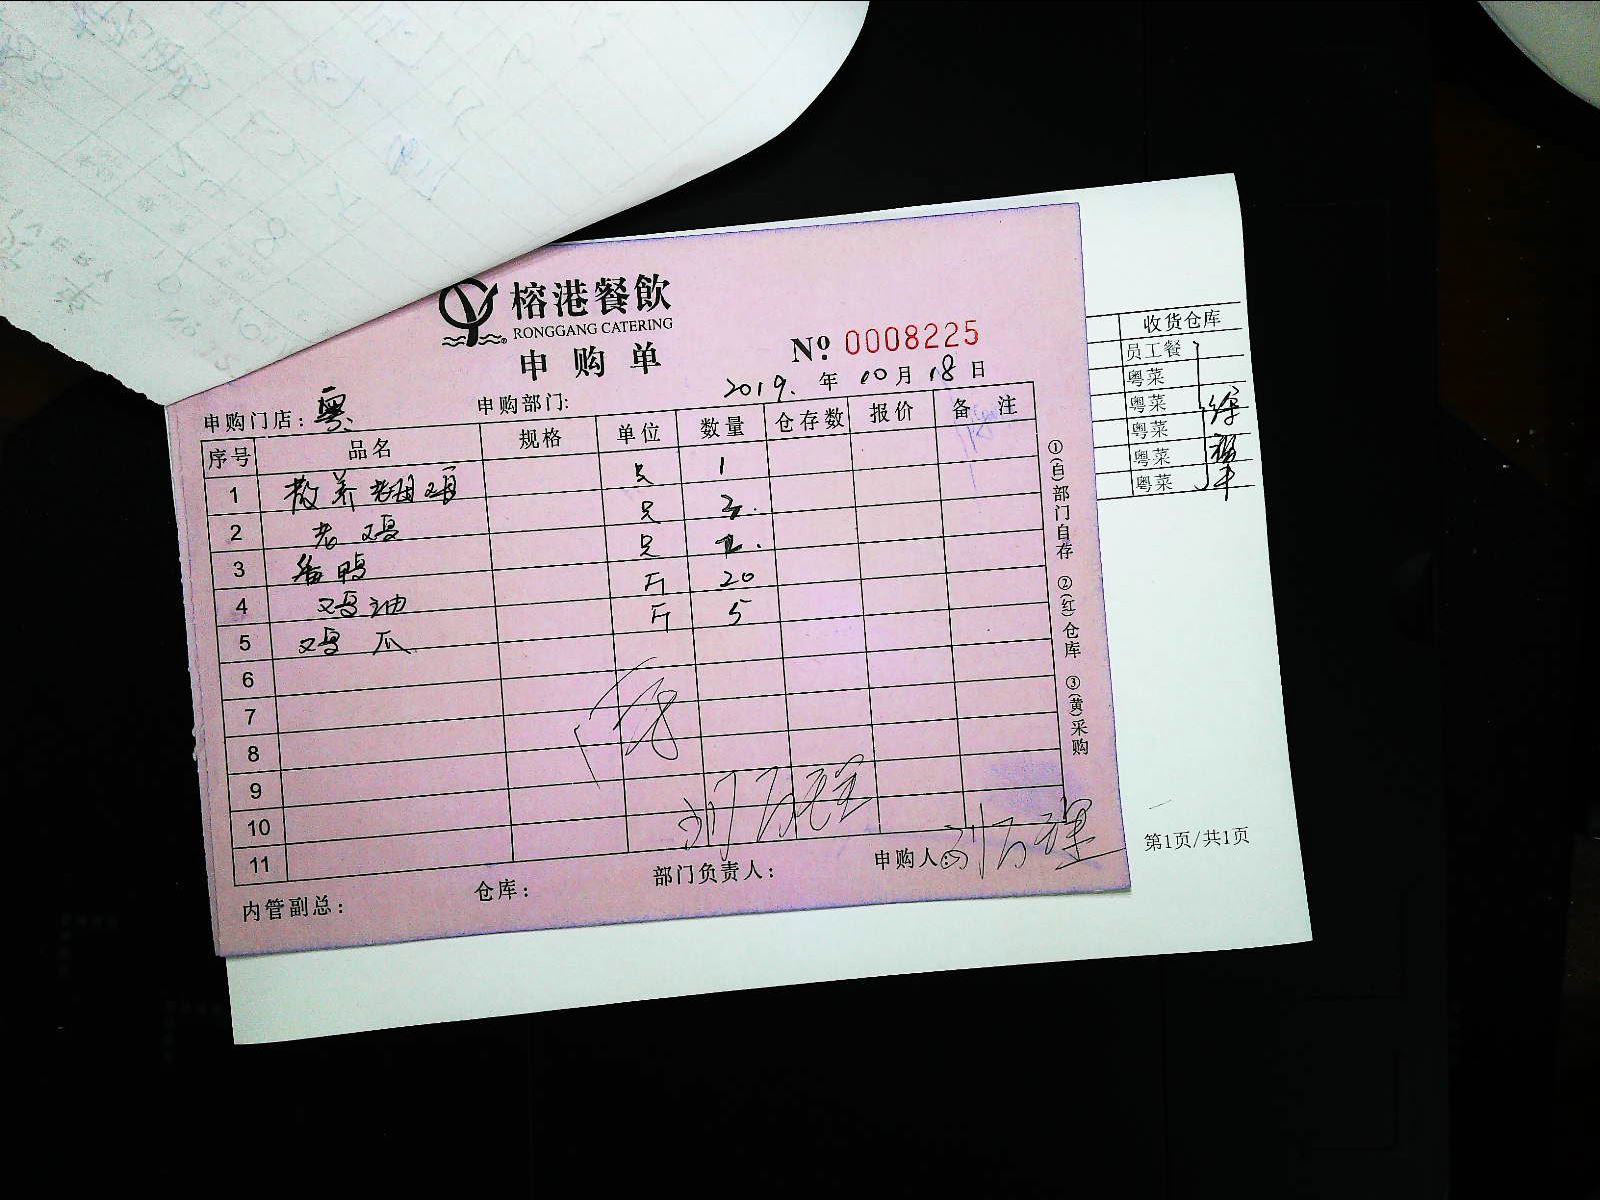 榕港餐飲
RONGGANG CATERING
申购单
Nº 0008225
2019. 年 10 月 18 日
申购门店: 粤
申购部门:
序号 品名 规格 单位 数量 仓存数 报价 备注
1 散养老母鸡 只 1
2 老鸡 只 2.
3 番鸭 只
4 鸡油 斤 20
5 鸡爪 斤 5
6
7
8
9
10
11
内管副总:
仓库:
部门负责人:
申购人:
①(白)部门自存 ②(红)仓库 ③(黄)采购
收货仓库
员工餐
粤菜
粤菜
粤菜
粤菜
粤菜
第1页/共1页